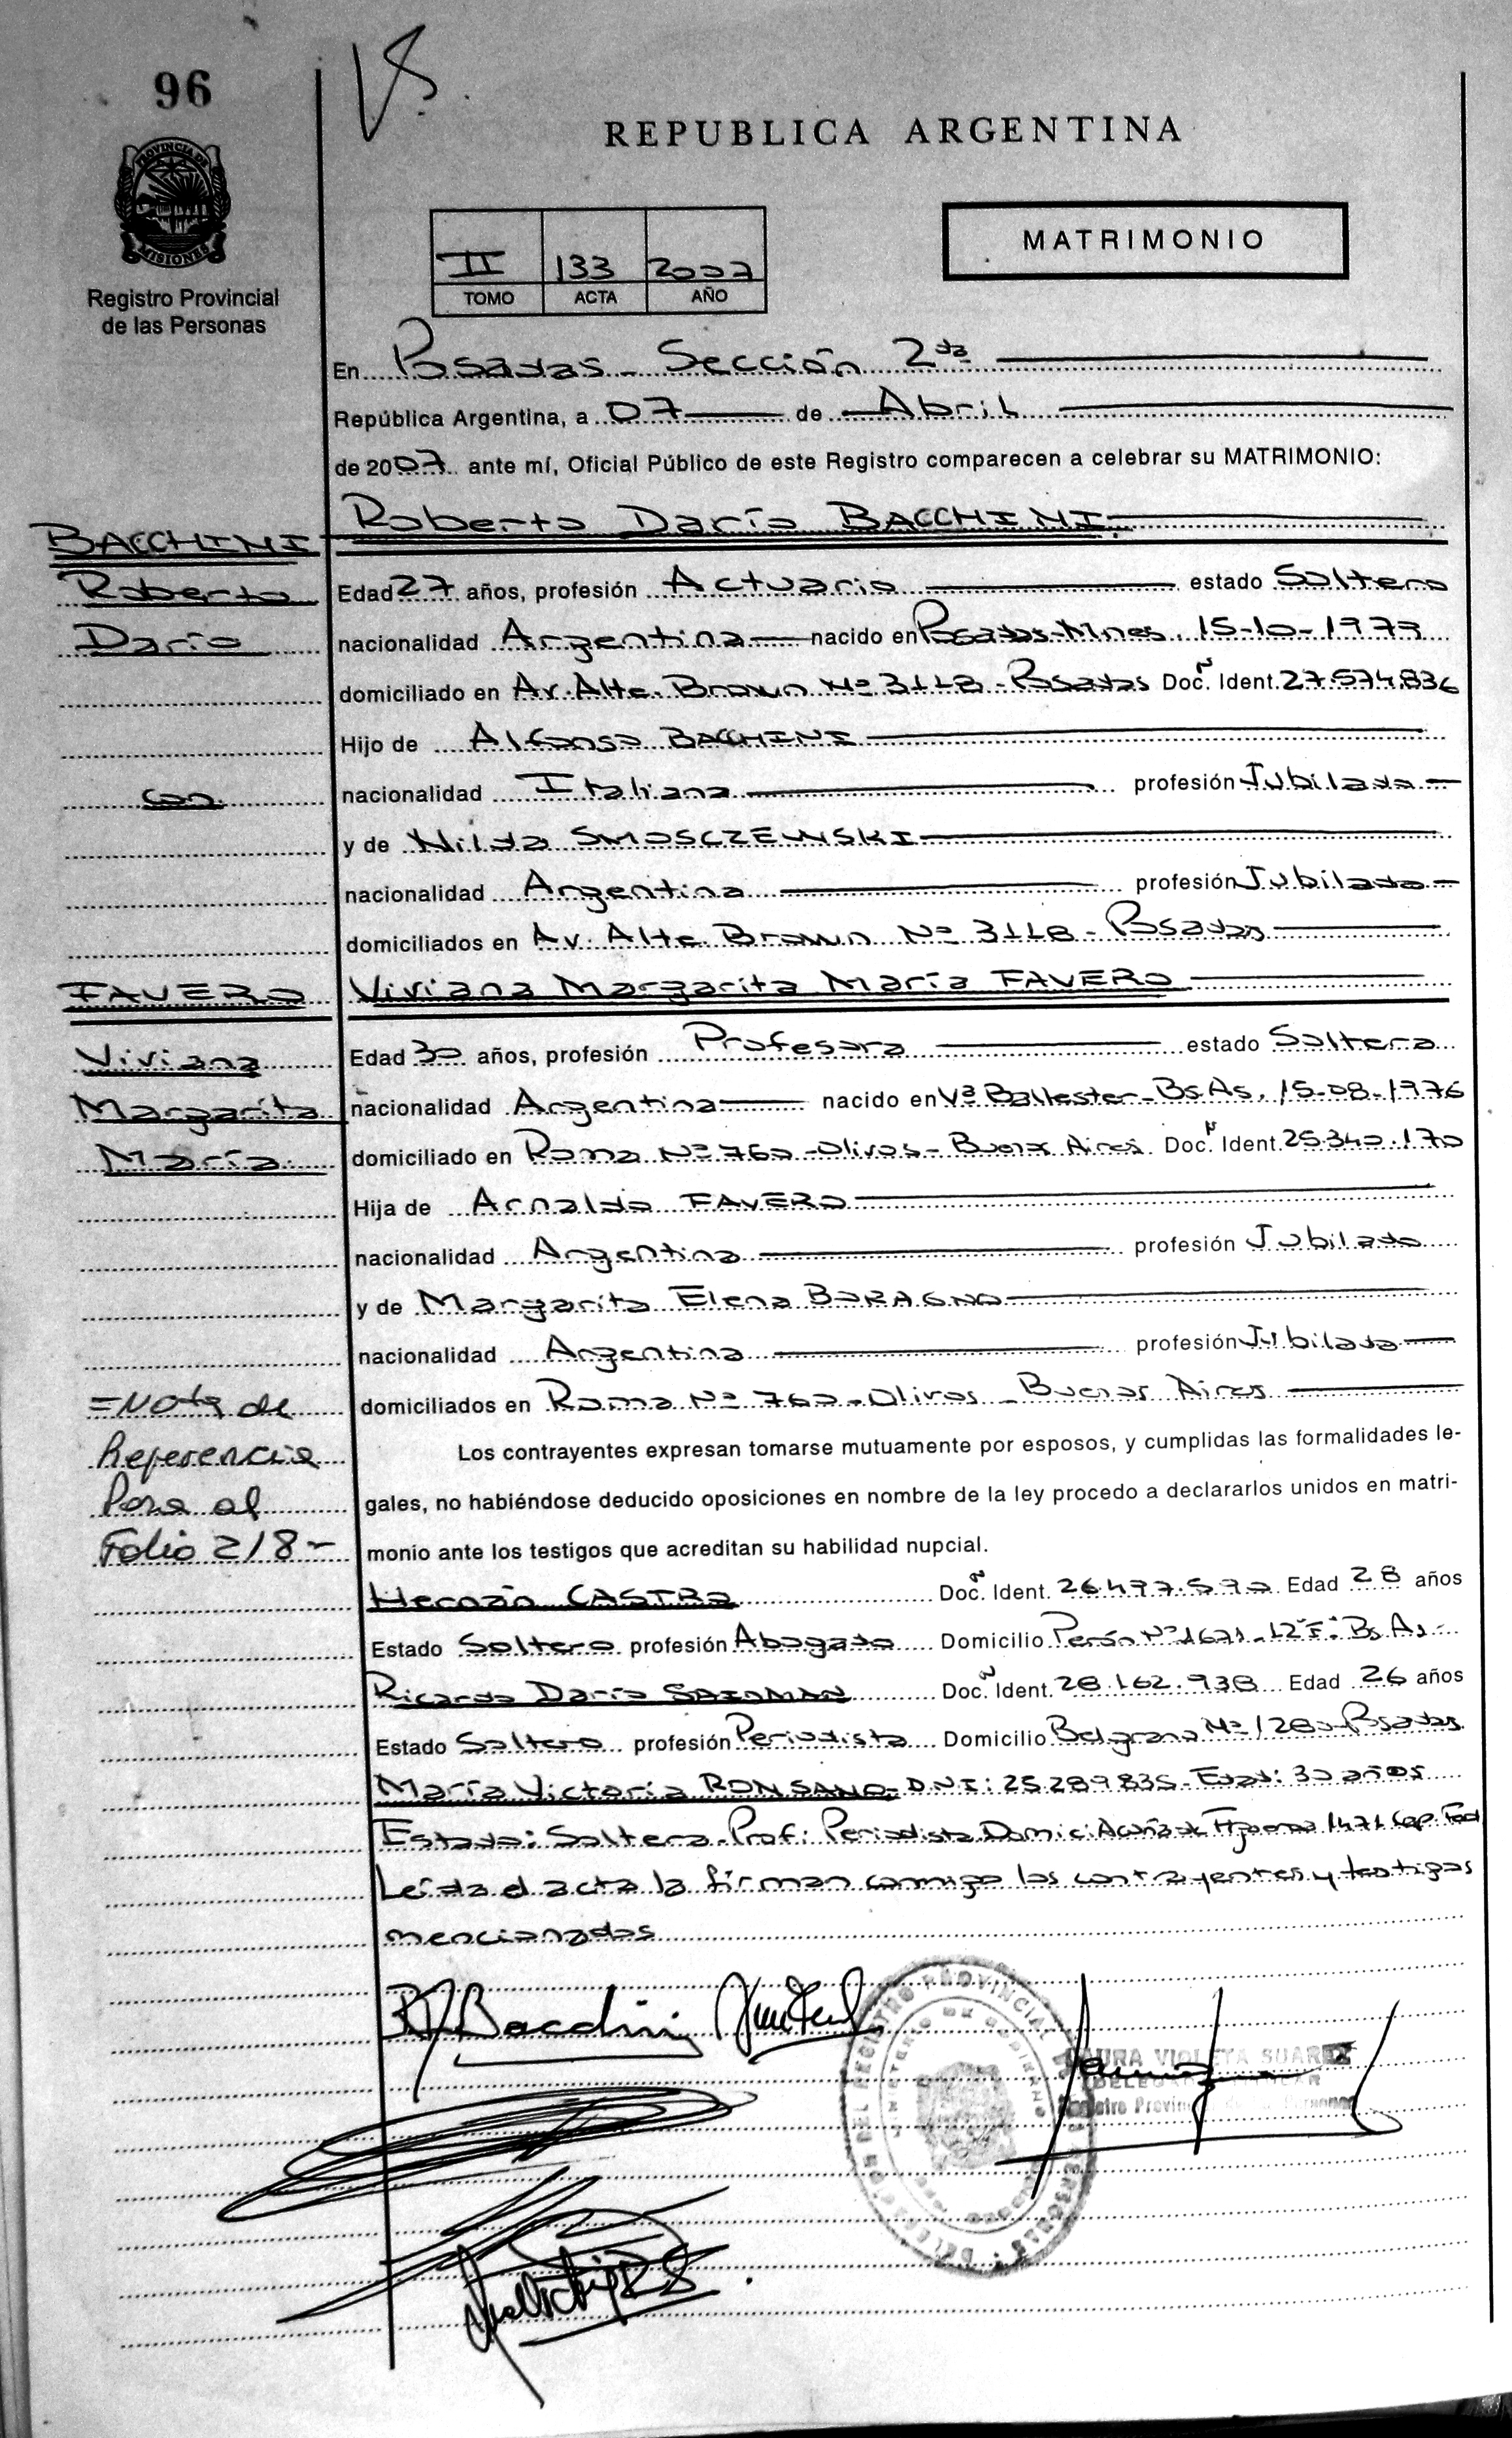 96
REPUBLICA ARGENTINA
PROVINCIA DE
MISIONES
Registro Provincial
de las Personas
II 133 2007
TOMO ACTA AÑO
MATRIMONIO
En Posadas - Sección 2da
República Argentina, a 07 de Abril
de 2007 ante mí, Oficial Público de este Registro comparecen a celebrar su MATRIMONIO:
BACCHINI Roberto Darío BACCHINI
Roberto Edad 27 años, profesión Actuario estado Soltero
Darío nacionalidad Argentina nacido en Posadas-Mnes. 15-10-1979
domiciliado en Av. Alte. Brown Nº 3118 - Posadas Doc. Ident. 27.574.836
Hijo de Alfonso BACCHINI
con nacionalidad Italiana profesión Jubilado
y de Nilda SMOSCZEWSKI
nacionalidad Argentina profesión Jubilada
domiciliados en Av. Alte. Brown Nº 3118 - Posadas
FAVERO Viviana Margarita María FAVERO
Viviana Edad 30 años, profesión Profesora estado Soltera
Margarita nacionalidad Argentina nacido en Vª Ballester - Bs.As. 15-08-1976
María domiciliado en Roma Nº 760 - Olivos - Buenos Aires. Doc. Ident. 25.340.170
Hija de Arnaldo FAVERO
nacionalidad Argentina profesión Jubilado
y de Margarita Elena BARAGNO
nacionalidad Argentina profesión Jubilada
=Nota de domiciliados en Roma Nº 760 - Olivos - Buenos Aires
Referencia Los contrayentes expresan tomarse mutuamente por esposos, y cumplidas las formalidades le-
Pasa al gales, no habiéndose deducido oposiciones en nombre de la ley procedo a declararlos unidos en matri-
Folio 218- monio ante los testigos que acreditan su habilidad nupcial.
Hernán CASTRO Doc. Ident. 26.497.590 Edad 28 años
Estado Soltero profesión Abogado Domicilio Perón Nº 1671 - 12 Bs As.
Ricardo Darío SAIDMAN Doc. Ident. 28.162.938 Edad 26 años
Estado Soltero profesión Periodista Domicilio Belgrano Nº 1280 - Posadas
María Victoria RONSANO - D.N.I: 25.289.835 - Edad: 30 años
Estado: Soltera - Prof: Periodista Domic: Acuña de Figueroa 1471 Cap. Fed
Leída el acta la firman conmigo los contrayentes y testigos
mencionados
RDBacchini
LAURA VIOLETA SUAREZ